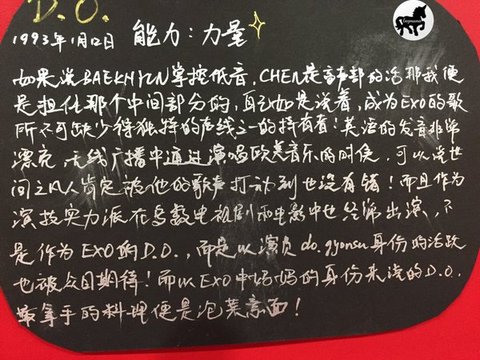 D.O.
1993年1月12日 能力:力量
如果说BAEKHYUN掌控低音,CHEN是高音部的话那我便
是担任那个中间部分的,真如是说着,成为EXO的歌
所不可缺少得独特的声线之一的持有者!英语的发音非常
漂亮 无线广播中通过演唱欧美音乐的时候,可以说世
间之人肯定被他的歌声打动到也没有错!而且作为
演技实力派在多数电视剧和电影中也经常出演,不
是作为EXO的D.O.,而是以演员do.gyonsu身份的活跃
也被众期待!而以EXO中妈妈的身份来说的D.O.
最拿手的料理便是泡菜意面!